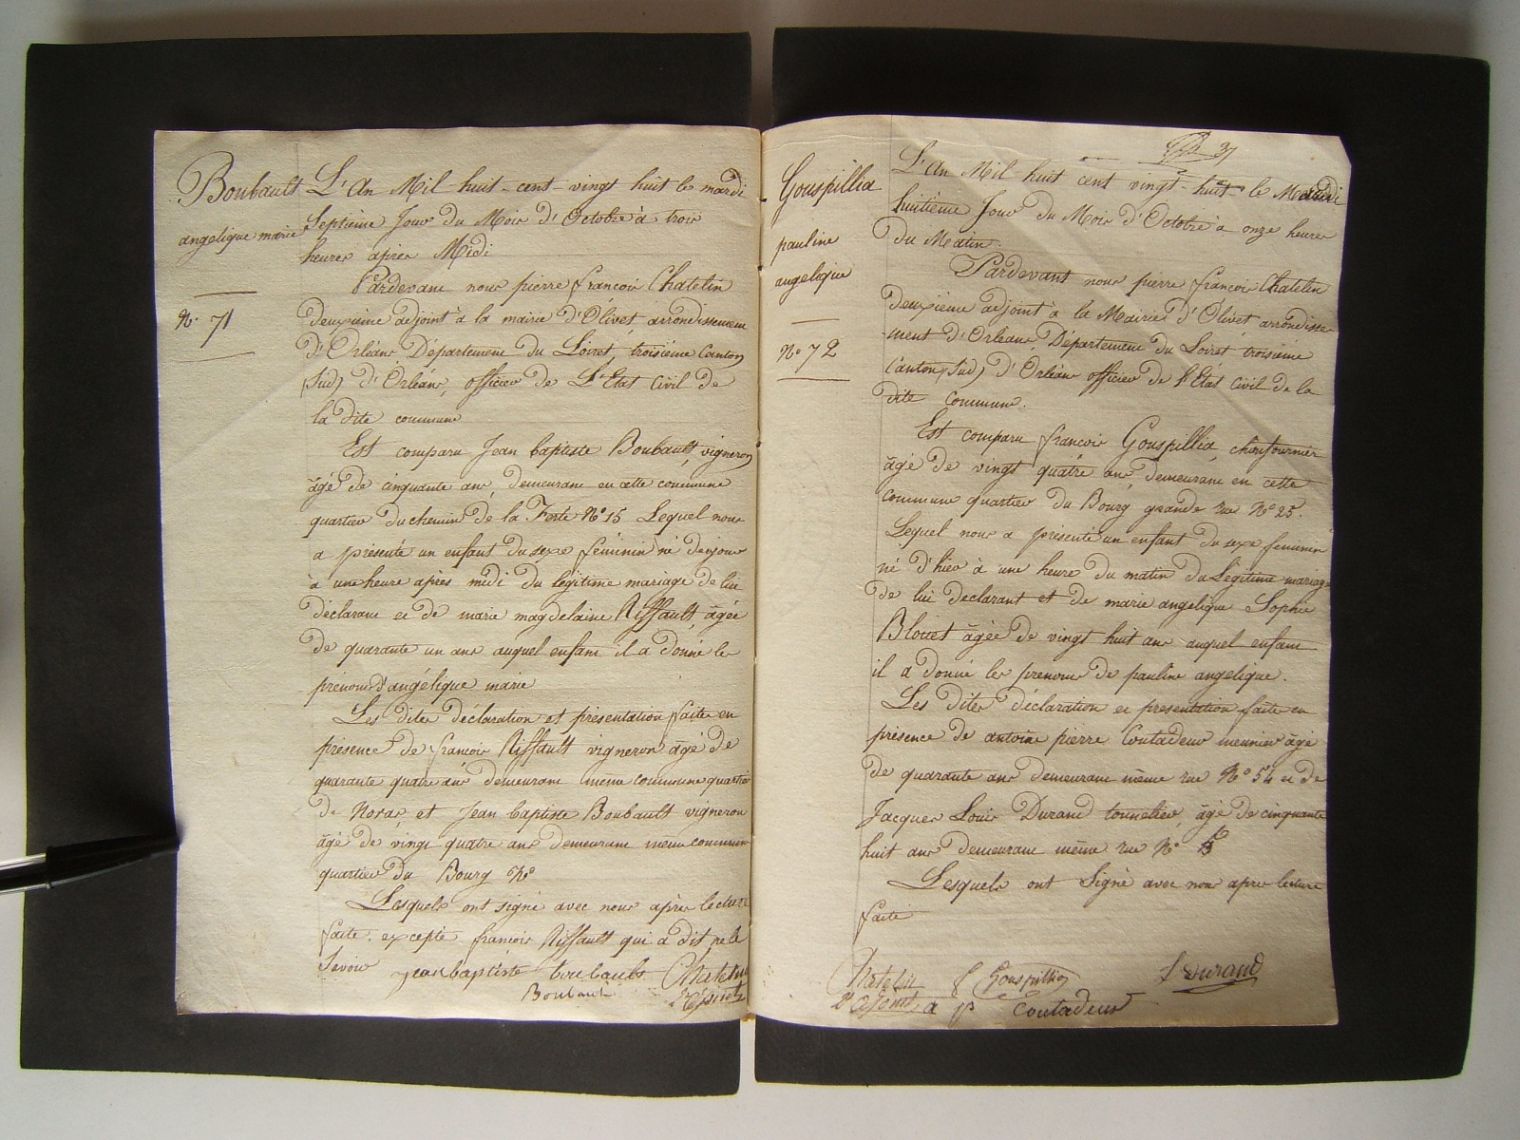 Boubault
angelique marie
No 71
L'An Mil huit-cent-vingt huit le mardi
Septième Jour du Mois d'Octobre à trois
heures après Midi
Pardevant nous pierre françois Chatelin
deuxième adjoint à la mairie d'Olivet arrondissement
d'Orléans Département du Loiret, troisième Canton
(Sud) d'Orléans, officier de L'Etat Civil de
la dite commune
Est comparu Jean baptiste Boubault, vigneron
âgé de cinquante ans, demeurant en cette commune
quartier du chemin de la Ferté No 15 Lequel nous
a présenté un enfant du sexe féminin né de ce jour
à une heure après midi du légitime mariage de lui
déclarant et de marie magdelaine Riffault, âgée
de quarante un ans auquel enfant il a donné les
prénoms d'angélique marie
Les dites déclaration et présentation faites en
présence de françois Riffault vigneron âgé de
quarante quatre ans demeurant même commune quartier
de et Jean baptiste Boubault vigneron
âgé de vingt quatre ans demeurant même commune
quartier du Bourg No
Lesquels ont signé avec nous après lecture
faite. excepté françois Riffault qui a dit ne le
Savoir jean baptiste boubault Chatelin
Boubault
37
Gouspillia
pauline
angelique
No 72
L'An Mil huit cent vingt-huit le Mercredi
huitième Jour du Mois d'Octobre à onze heures
du Matin.
Pardevant nous pierre françois Chatelin
deuxième adjoint à la Mairie d'Olivet arrondisse-
ment d'Orléans, Département du Loiret troisième
Canton (Sud) d'Orléans officier de l'État Civil de la
dite Commune.
Est comparu françois Gouspillia, chaufournier
âgé de vingt quatre ans, demeurant en cette
commune quartier du Bourg grande rue No 25.
Lequel nous a présenté un enfant du sexe féminin
né d'hier à une heure du matin du Légitime mariage
de lui declarant et de marie angelique Sophie
Blouet âgée de vingt huit ans auquel enfant
il a donné les prenoms de pauline angelique.
Les dites déclaration et presentation faite en
présence de antoine pierre Coutadeur meunier âgé
de quarante ans demeurant même rue No 54 et de
Jacques Louis Durand tonnelier, âgé de cinquante
huit ans demeurant même rue No
Lesquels ont Signé avec nous après lecture
faite
Chatelin f Gouspillia Durand
a p Coutadeur